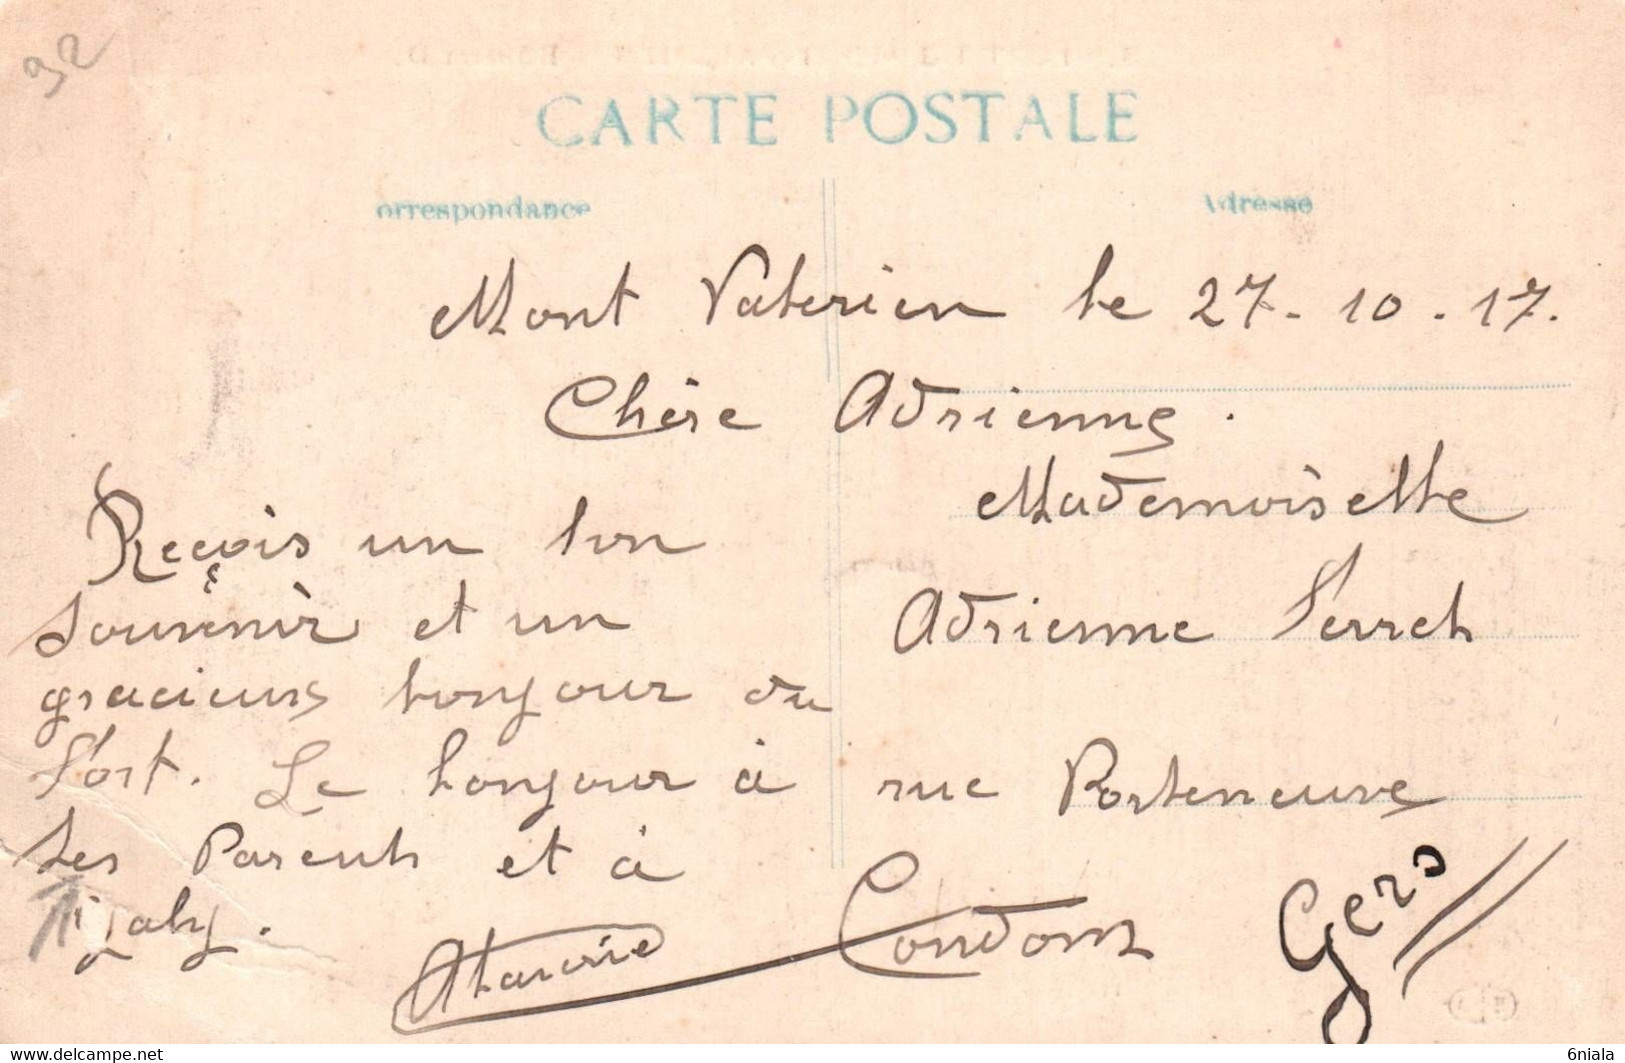 92
CARTE POSTALE
orrespondance
Adresse
Mont Valerien le 27-10-17.
Chère Adrienne.
Reçois un bon
souvenir et un
gracieux bonjour du
Fort. Le bonjour à
tes Parents et à
Mademoiselle
Adrienne Verret
rue Porteneuve
Condom Gers
www.delcampe.net
6niala